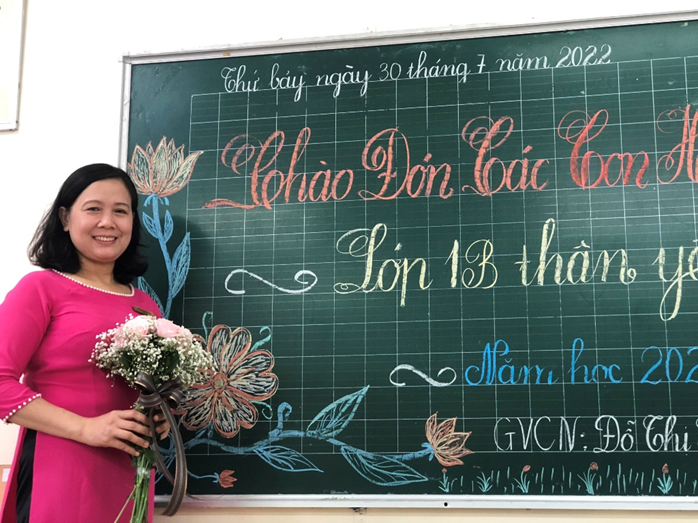 Thứ bảy ngày 30 tháng 7 năm 2022
Chào Đón Các Con
Lớp 1B thân
Năm học
GVCN: Đỗ Thị